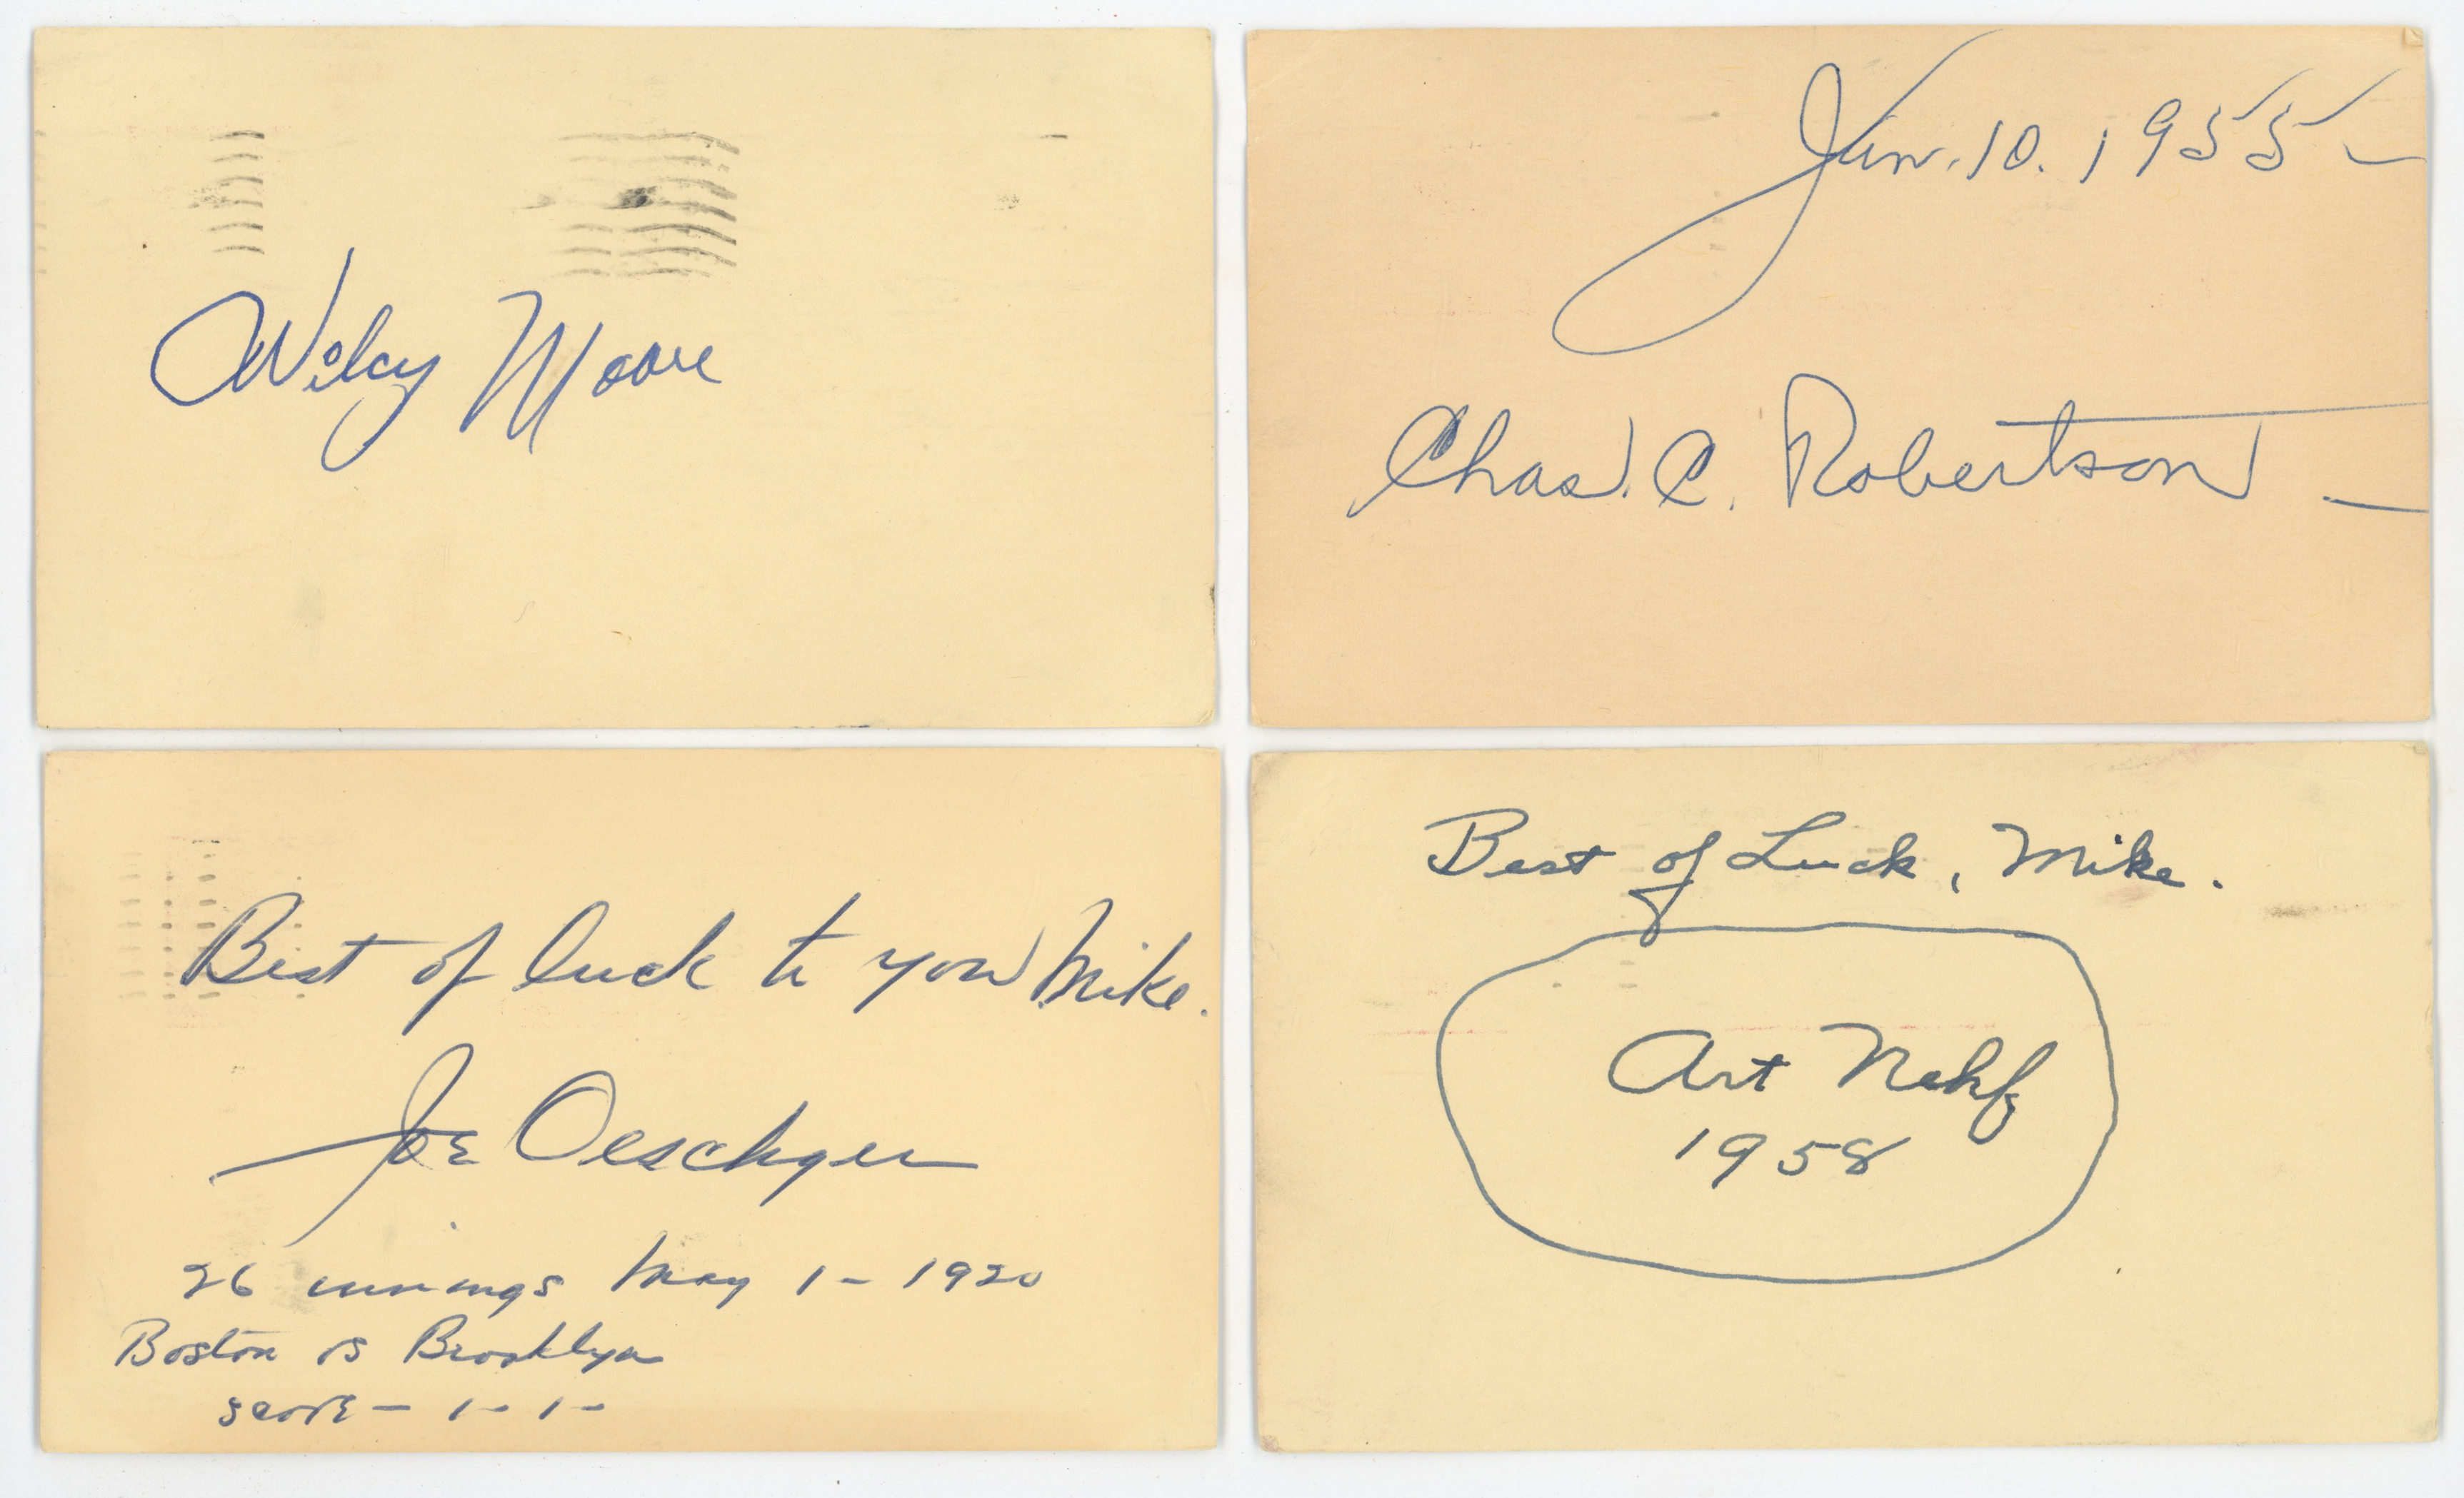 Wilcy Moore
Jan. 10. 1955 —
Chas. C. Robertson —
Best of luck to you Mike.
Joe Oeschger
26 innings May 1 - 1920
Boston vs Brooklyn
score - 1 - 1 -
Best of Luck, Mike.
Art Nehf
1958